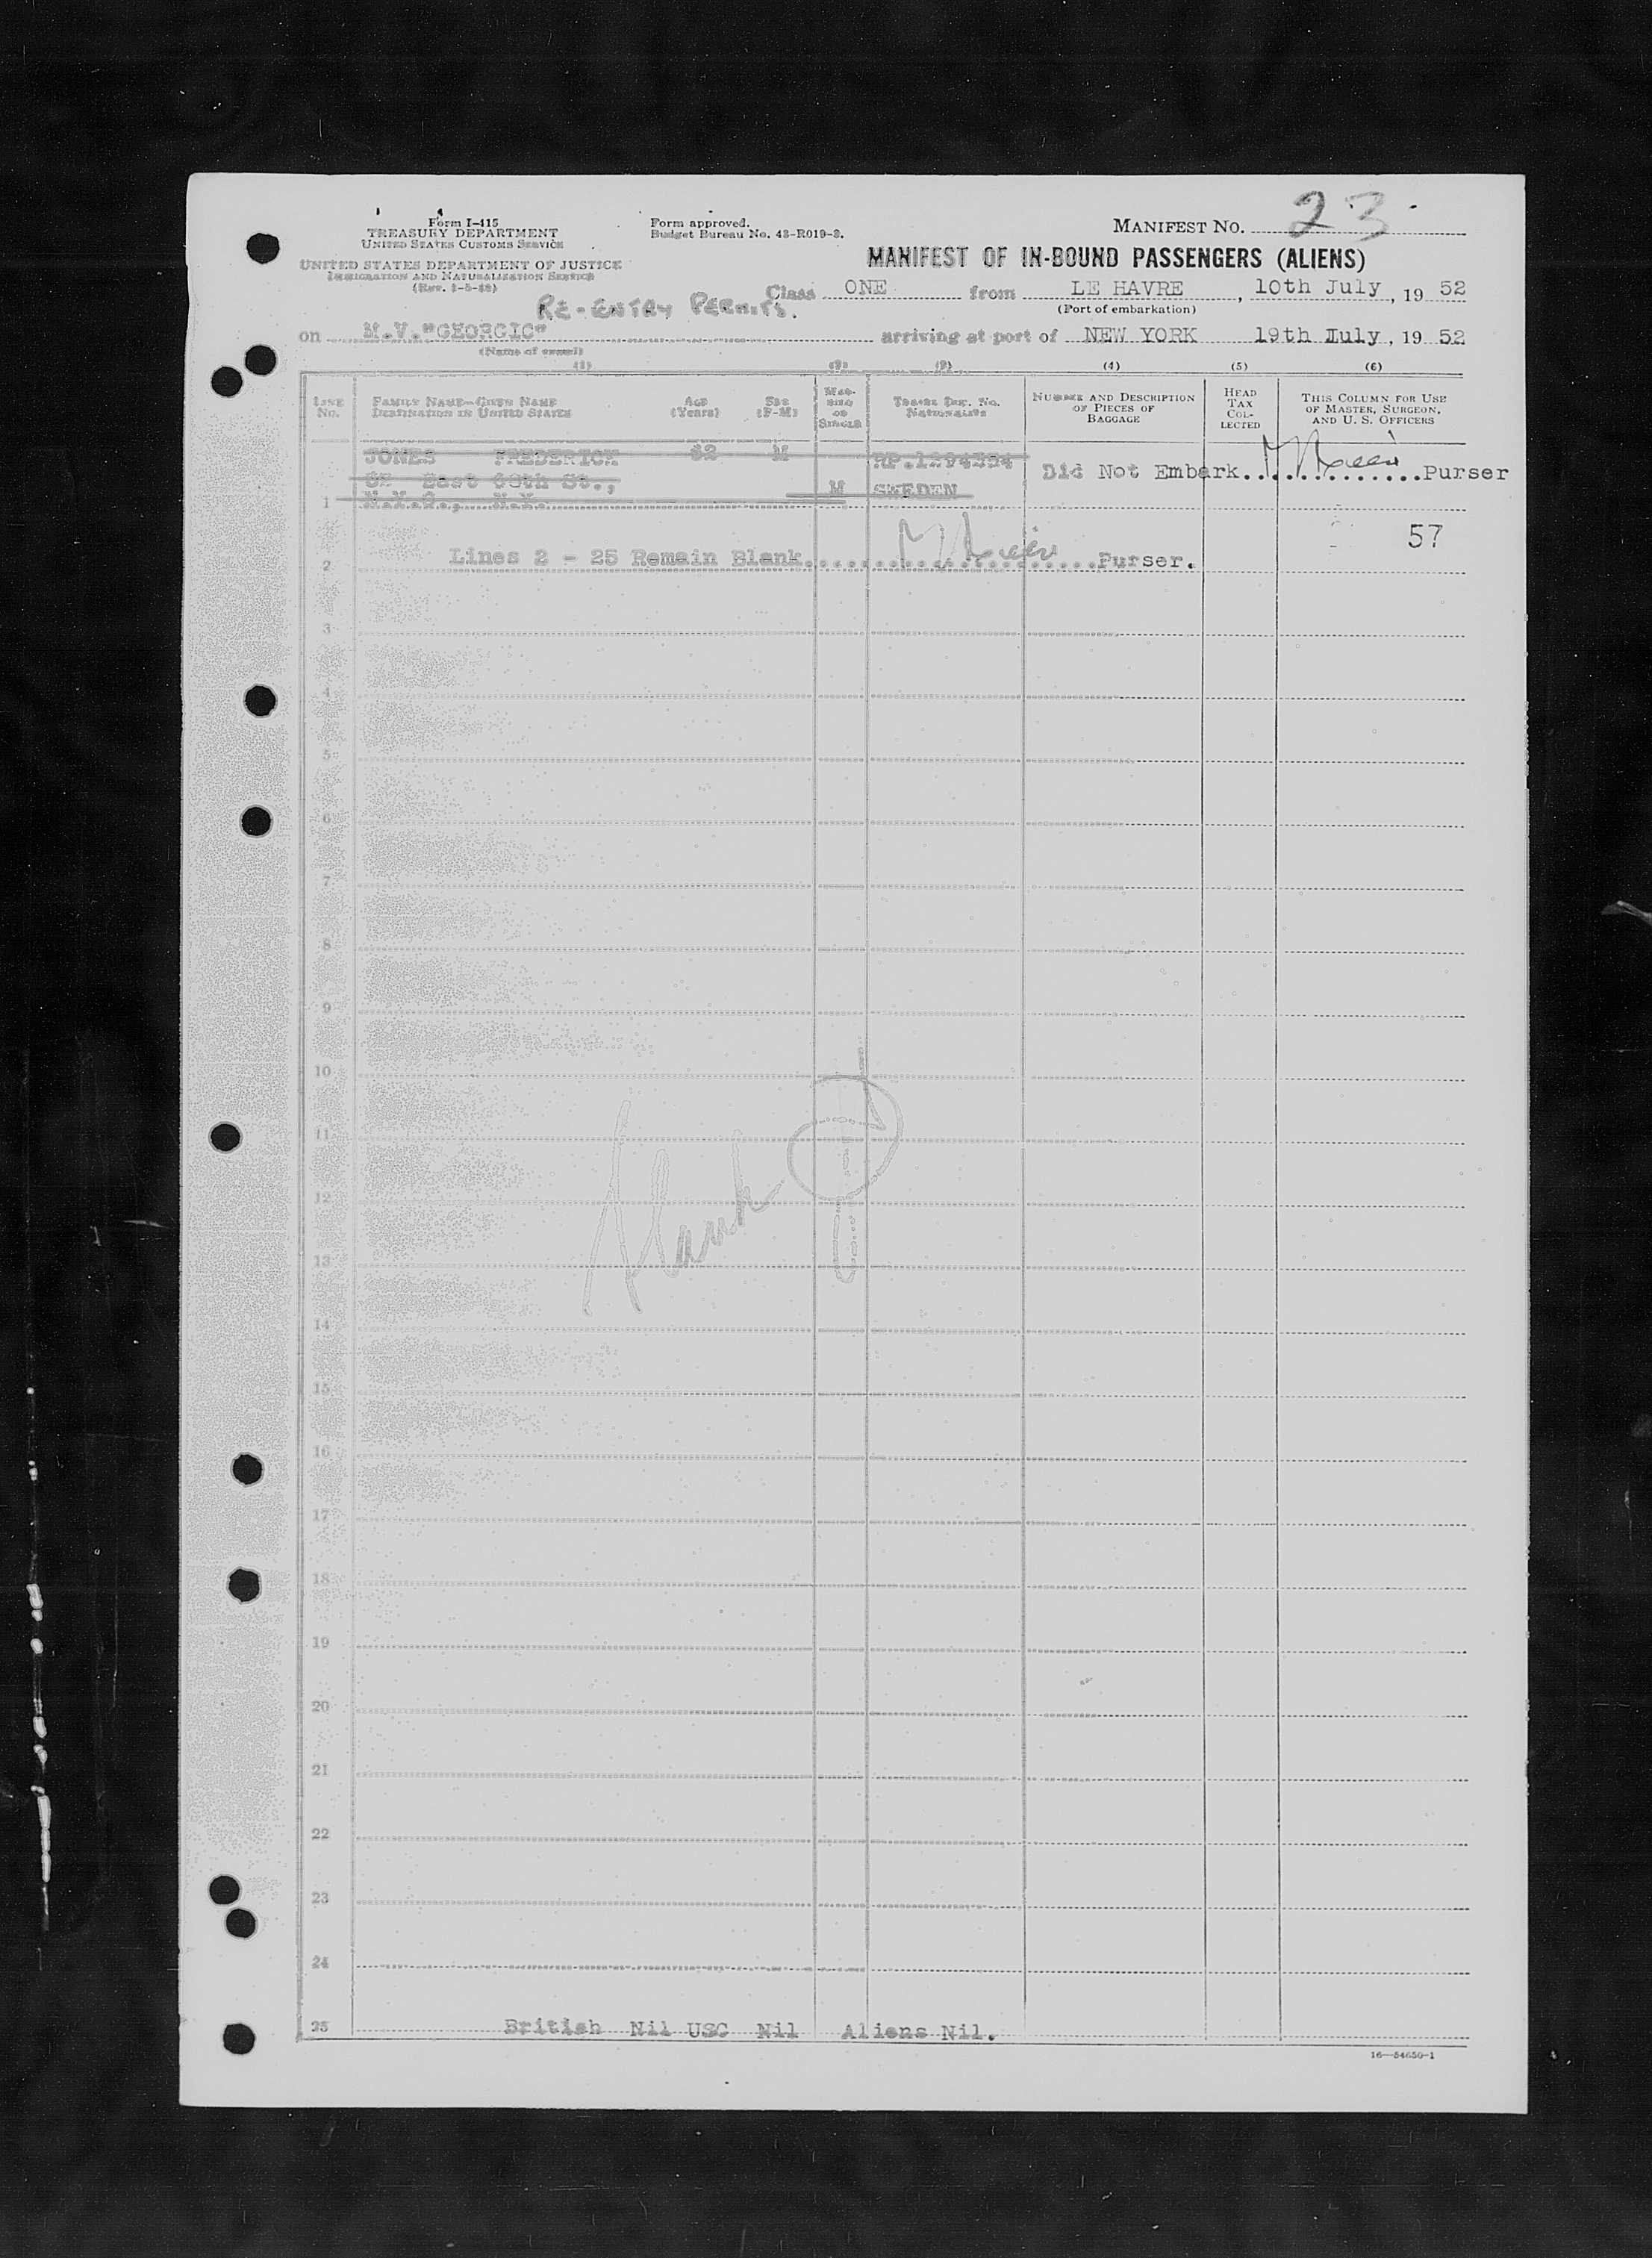 Form I-415
TREASURY DEPARTMENT
UNITED STATES CUSTOMS SERVICE
UNITED STATES DEPARTMENT OF JUSTICE
IMMIGRATION AND NATURALIZATION SERVICE
(Rev. 1-5-48)
Form approved.
Budget Bureau No. 43-R019-3.
MANIFEST NO. 23
MANIFEST OF IN-BOUND PASSENGERS (ALIENS)
RE-ENTRY PERMITS.
Class ONE from LE HAVRE, 10th July, 19 52
(Port of embarkation)
on M.V."GEORGIC" arriving at port of NEW YORK 19th Iuly, 19 52
(Name of vessel)
(1) (2) (3) (4) (5) (6)
LINE No. FAMILY NAME—GIVEN NAME DESTINATION IN UNITED STATES AGE (Years) SEX (F-M) MARRIED OR SINGLE TRAVEL DOC. No. NATIONALITY NUMBER AND DESCRIPTION OF PIECES OF BAGGAGE HEAD TAX COLLECTED THIS COLUMN FOR USE OF MASTER, SURGEON, AND U. S. OFFICERS
JONES FREDERICK M RP.1294394
Did Not Embark.............Purser
East St., M SWEDEN
1 N.Y.C., N.Y.
57
2 Lines 2 - 25 Remain Blank......................Purser.
3
4
5
6
7
8
9
10
11
Blank
12
13
14
15
16
17
18
19
20
21
22
23
24
25 British Nil USC Nil Aliens Nil.
16—54650-1